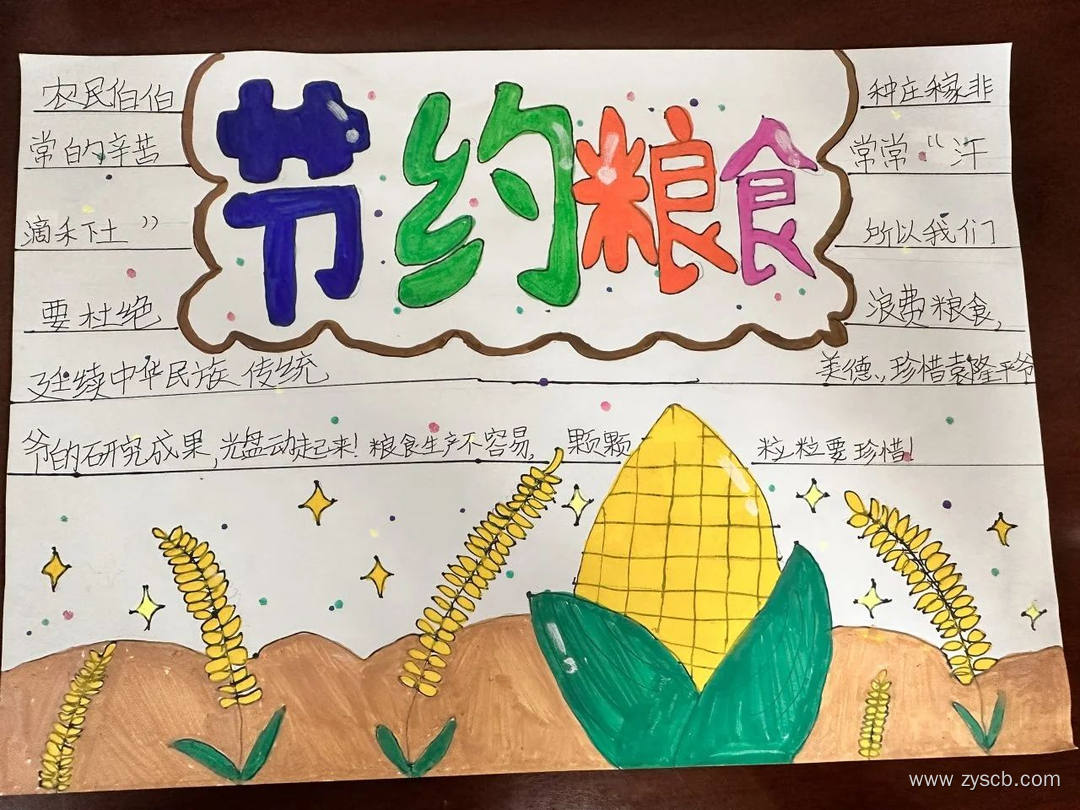 节约粮食
农民伯伯 种庄稼非
常的辛苦 常常“汗
滴禾下土” 所以我们
要杜绝 浪费粮食,
延续中华民族传统 美德,珍惜袁隆平爷
爷的研究成果,光盘动起来!粮食生产不容易,颗颗 粒粒要珍惜!
www.zyscb.com